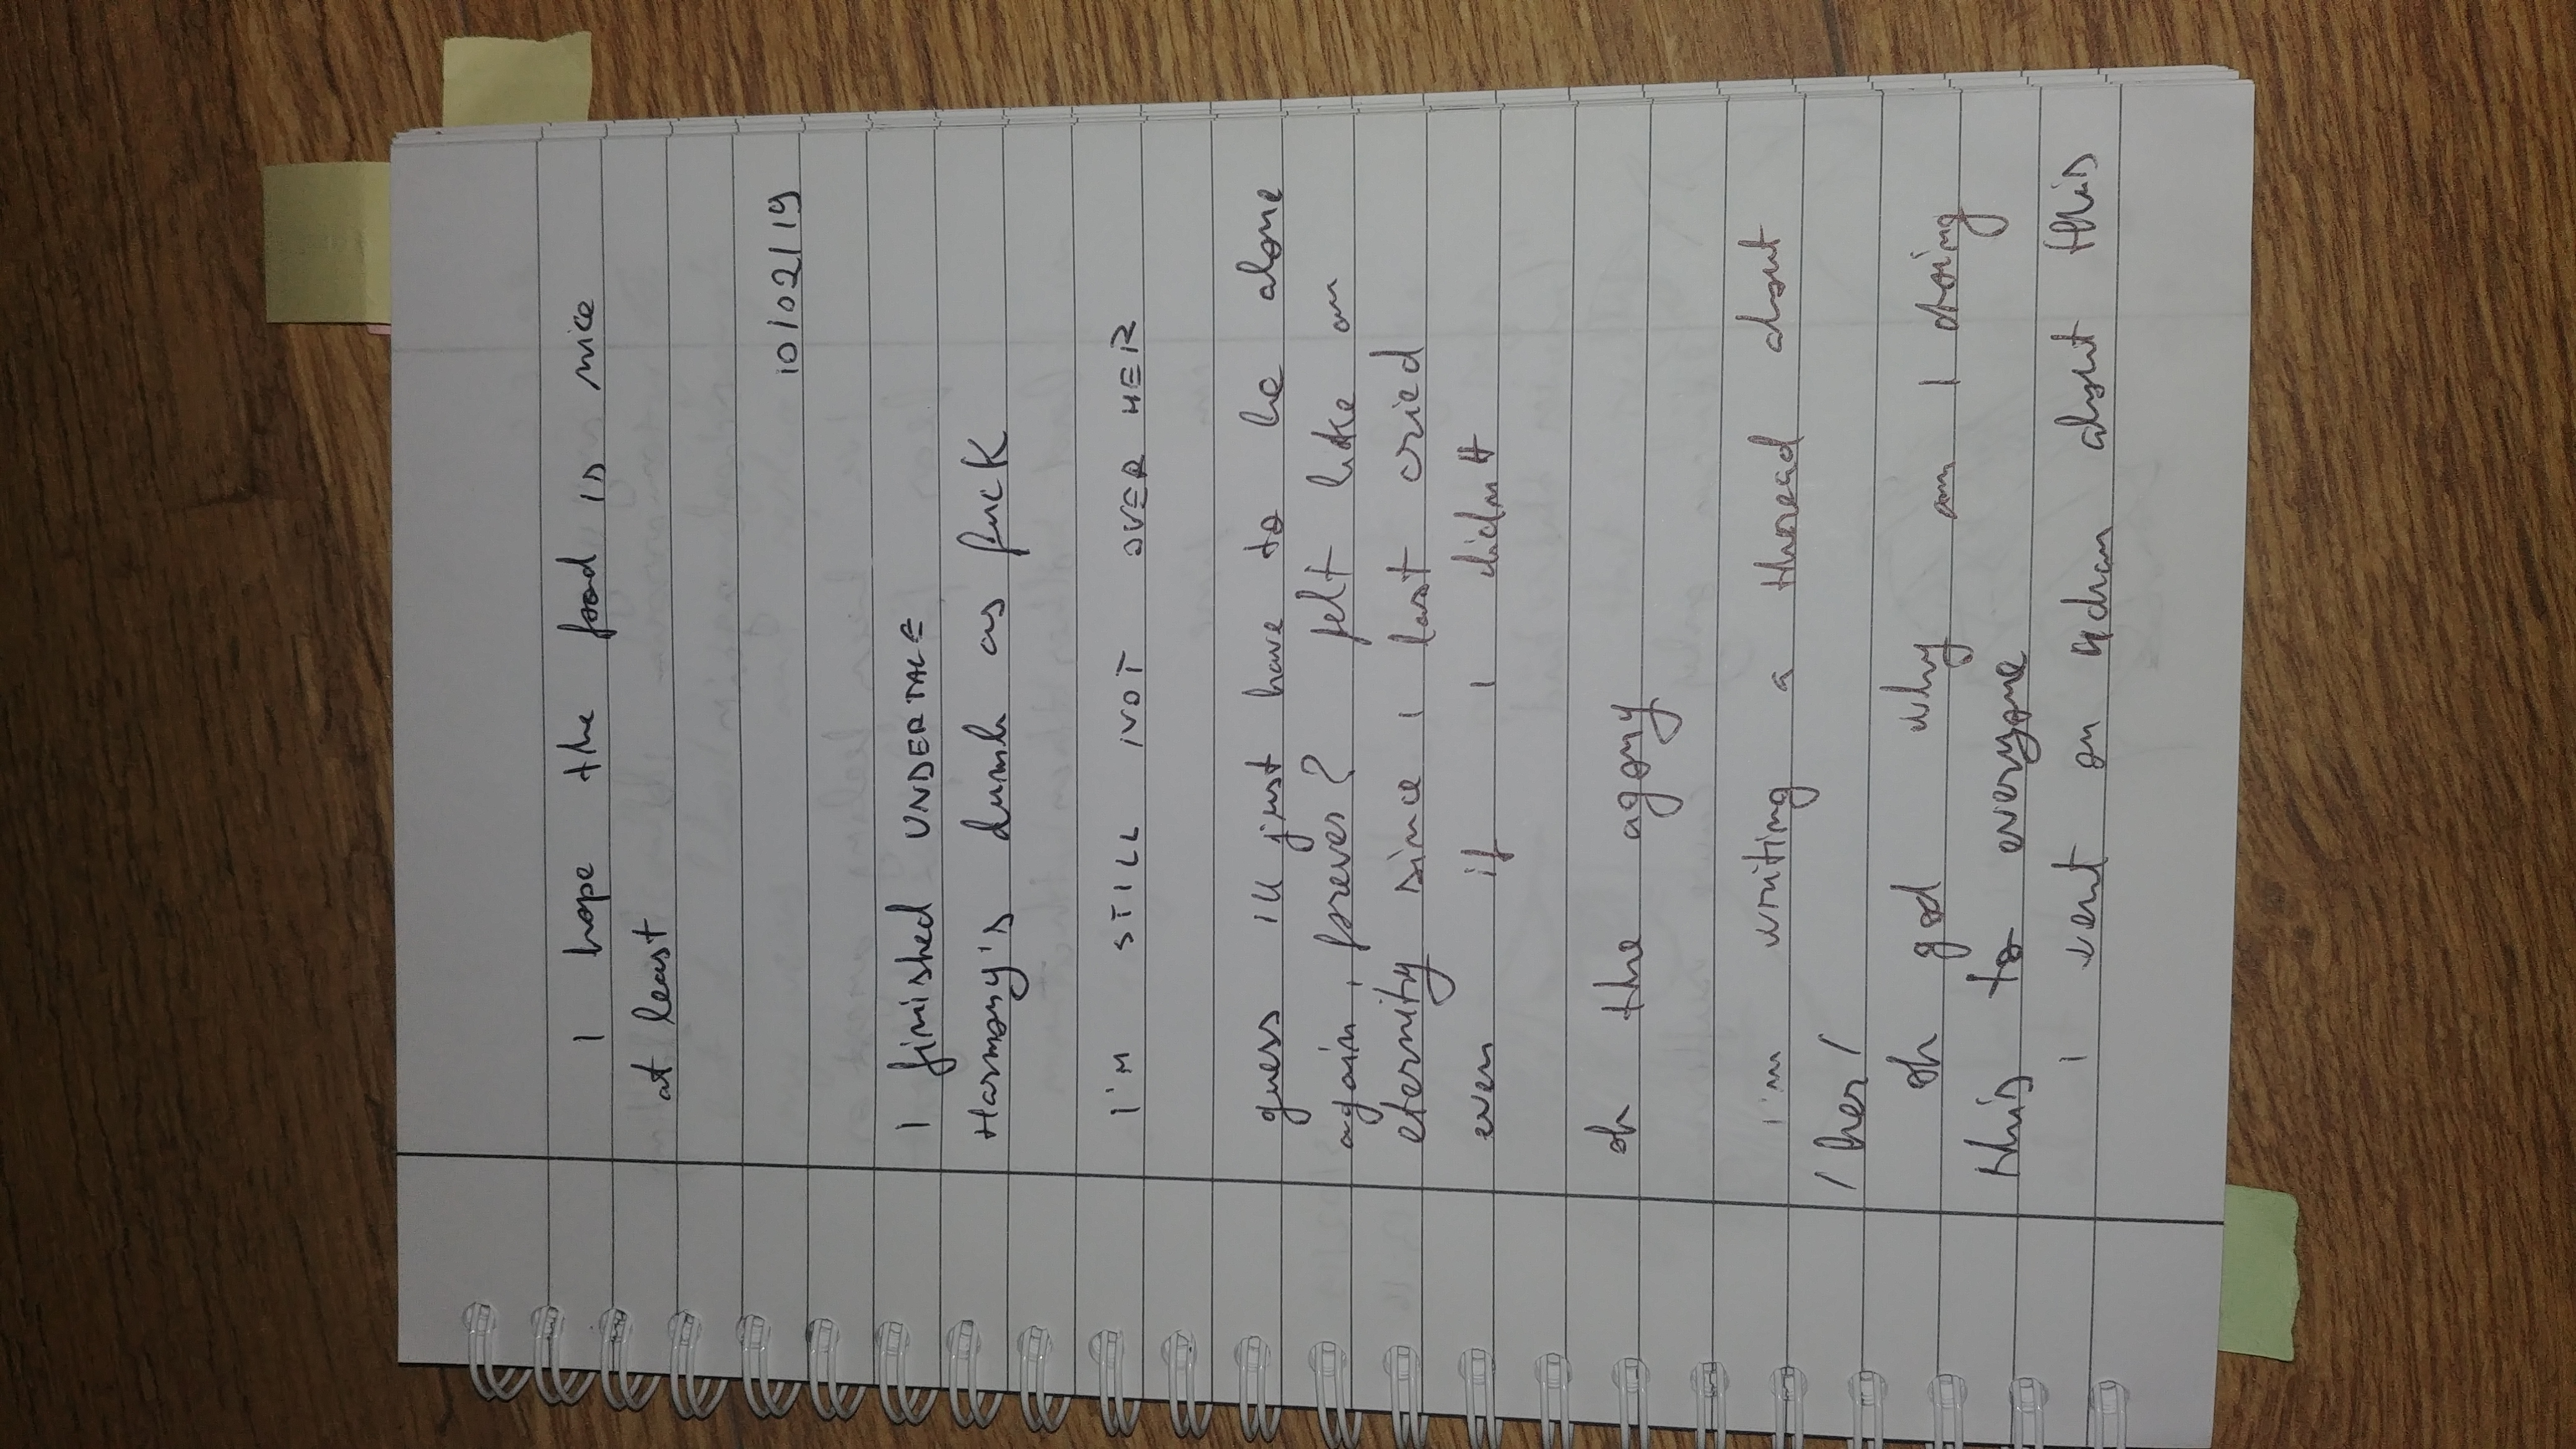 I hope the food is nice
at least
10/02/19
I finished UNDERTALE
Harmony's dumb as fuck
I'M STILL NOT OVER HER
guess ill just have to be alone
again, forever? felt like an
eternity since i last cried
even if I didnt
oh the agony
i'm writing a thread about
/her/
oh god why am I doing
this to everyone
i vent on 4chan about this